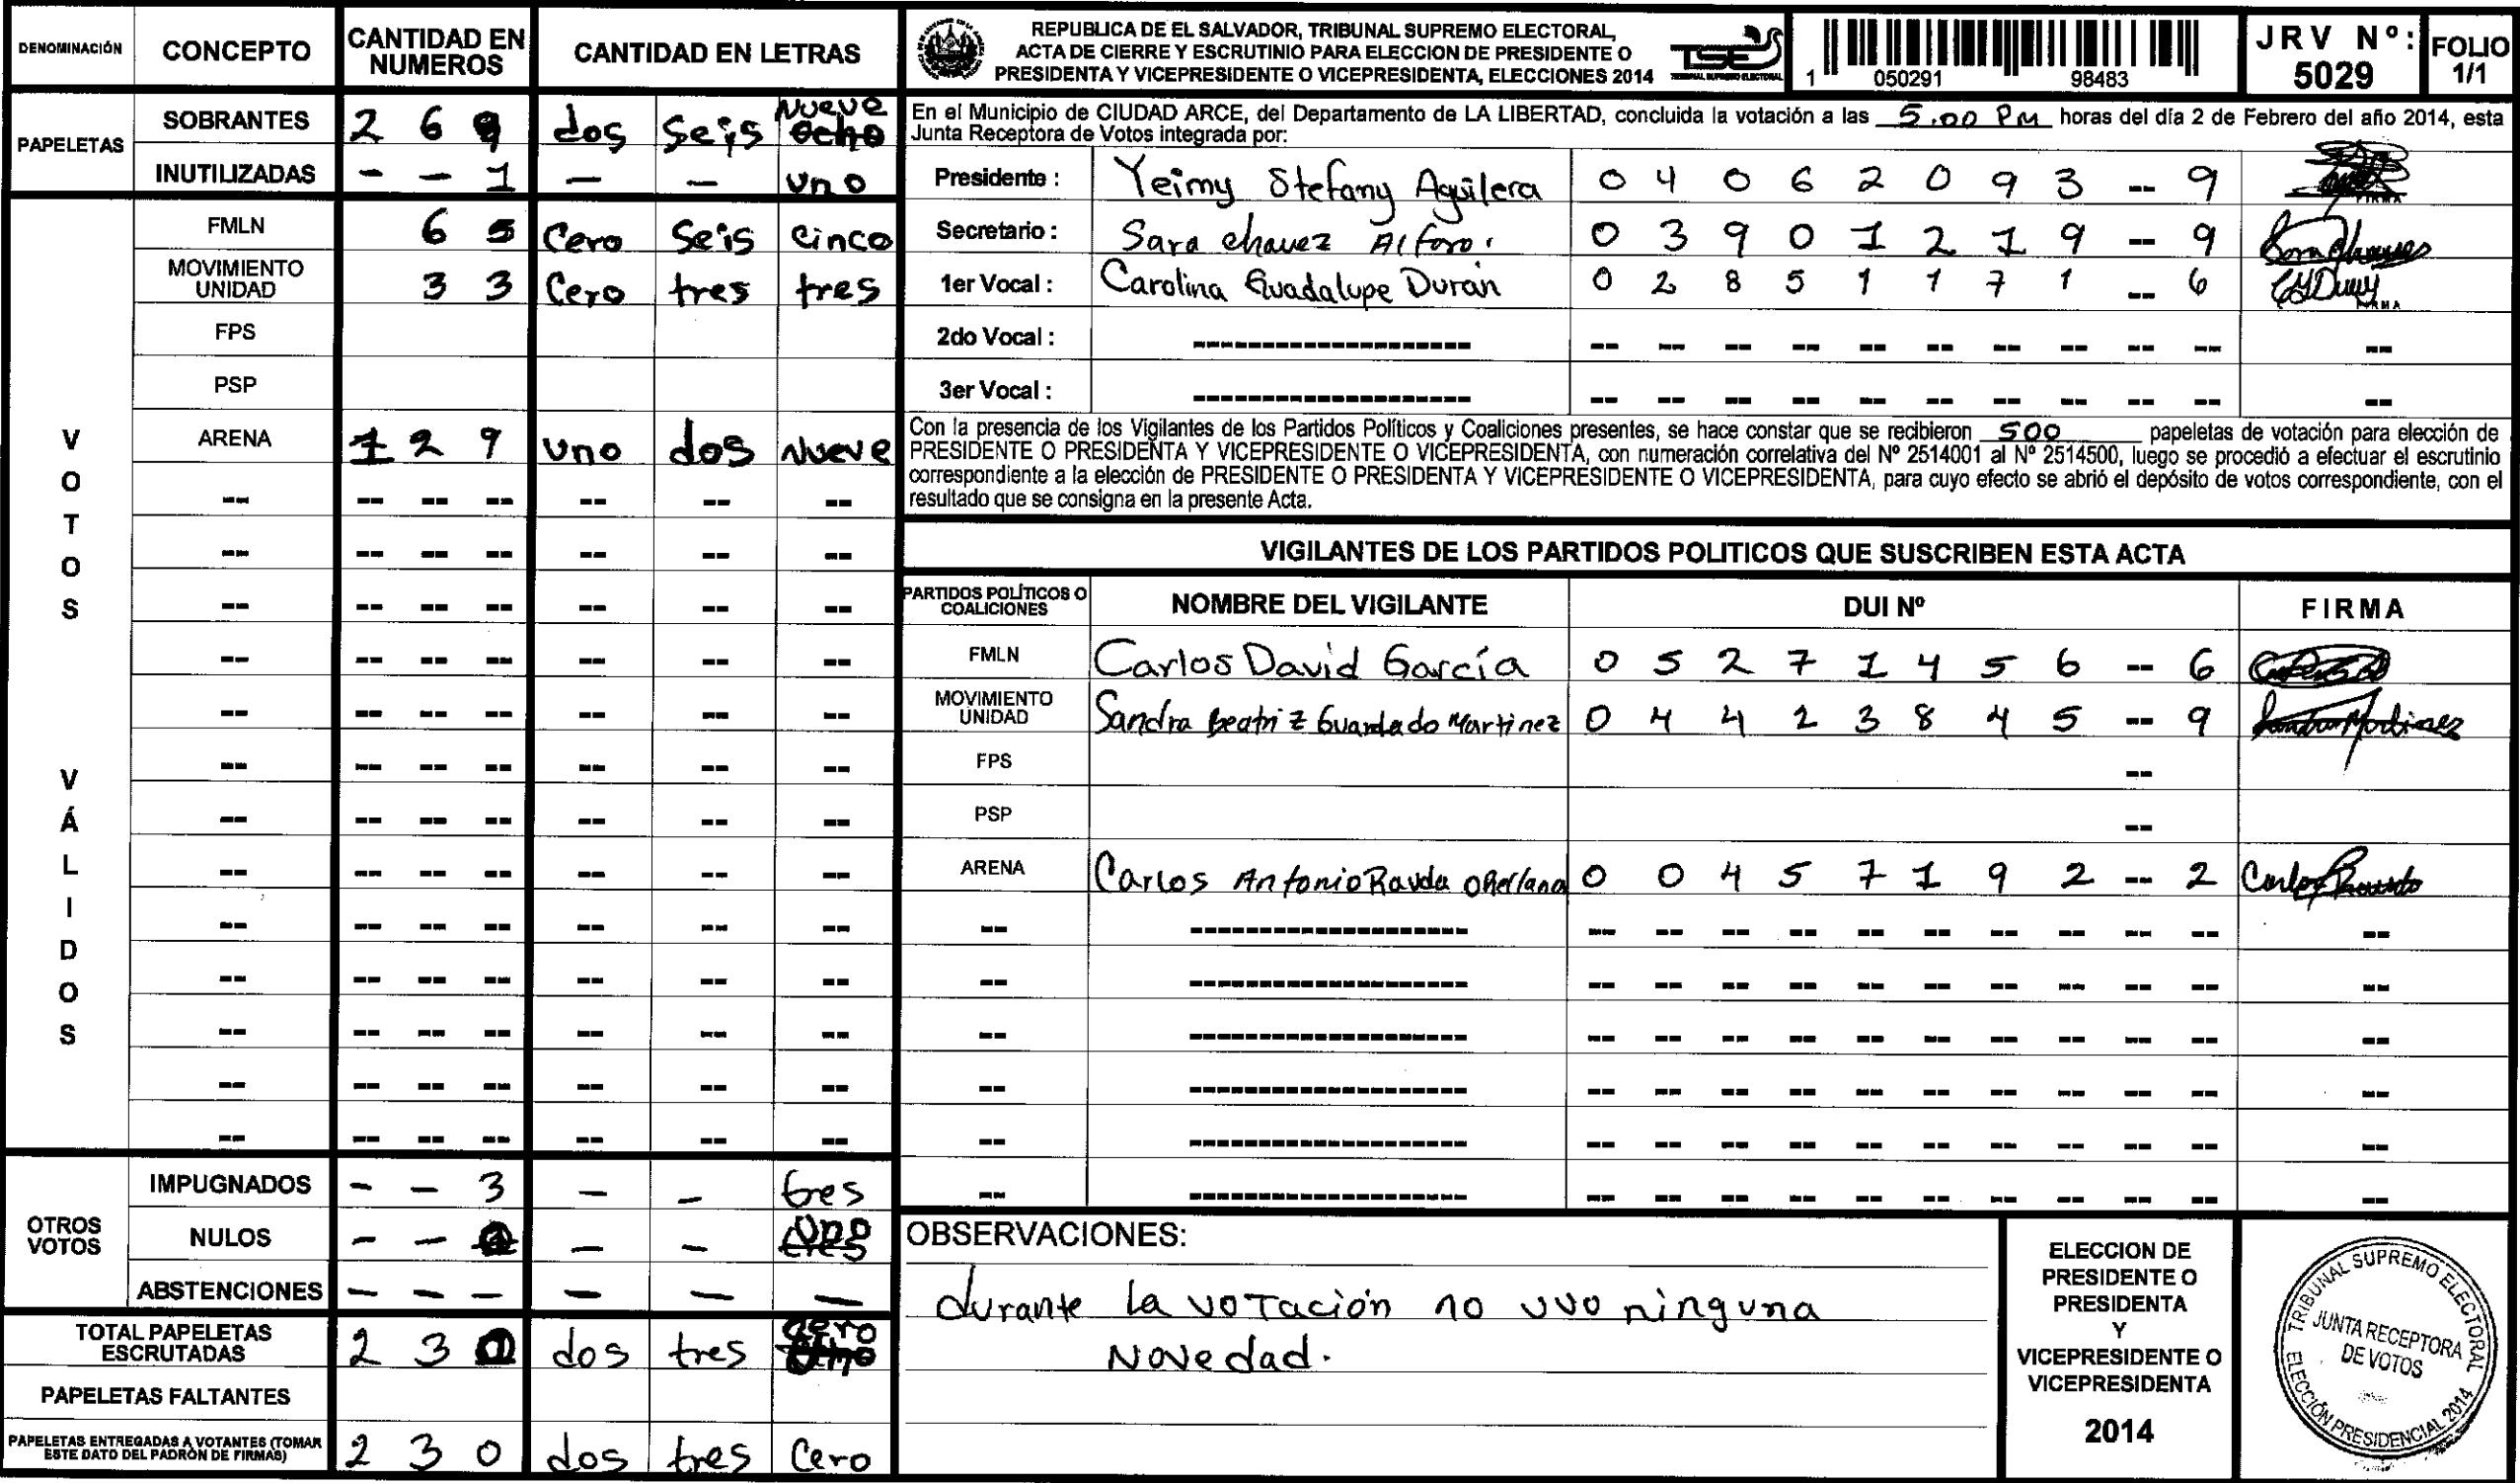 DENOMINACIÓN CONCEPTO CANTIDAD EN NUMEROS CANTIDAD EN LETRAS
PAPELETAS
SOBRANTES 2 6 9 dos seis Nueve ocho
INUTILIZADAS - - 1 - - uno
VOTOS VÁLIDOS
FMLN 6 5 Cero Seis Cinco
MOVIMIENTO UNIDAD 3 3 Cero tres tres
FPS
PSP
ARENA 1 2 9 uno dos Nueve
-- -- -- -- -- -- --
-- -- -- -- -- -- --
-- -- -- -- -- -- --
-- -- -- -- -- -- --
-- -- -- -- -- -- --
-- -- -- -- -- -- --
-- -- -- -- -- -- --
-- -- -- -- -- -- --
-- -- -- -- -- -- --
-- -- -- -- -- -- --
-- -- -- -- -- -- --
-- -- -- -- -- -- --
-- -- -- -- -- -- --
OTROS VOTOS
IMPUGNADOS - - 3 - - tres
NULOS - - - - Uno tres
ABSTENCIONES - - - - - -
TOTAL PAPELETAS ESCRUTADAS 2 3 0 dos tres cero
PAPELETAS FALTANTES
PAPELETAS ENTREGADAS A VOTANTES (TOMAR ESTE DATO DEL PADRÓN DE FIRMAS) 2 3 0 dos tres Cero
REPUBLICA DE EL SALVADOR, TRIBUNAL SUPREMO ELECTORAL,
ACTA DE CIERRE Y ESCRUTINIO PARA ELECCION DE PRESIDENTE O
PRESIDENTA Y VICEPRESIDENTE O VICEPRESIDENTA, ELECCIONES 2014
TSE
TRIBUNAL SUPREMO ELECTORAL
1 050291 98483
JRV Nº: 5029
FOLIO 1/1
En el Municipio de CIUDAD ARCE, del Departamento de LA LIBERTAD, concluida la votación a las 5.00 PM horas del día 2 de Febrero del año 2014, esta
Junta Receptora de Votos integrada por:
Presidente : Yeimy Stefany Aguilera 0 4 0 6 2 0 9 3 -- 9
Secretario : Sara chavez Alfaro. 0 3 9 0 1 2 1 9 -- 9
1er Vocal : Carolina Guadalupe Durán 0 2 8 5 1 1 7 1 -- 6
2do Vocal : -------------------- -- -- -- -- -- -- -- -- -- -- --
3er Vocal : -------------------- -- -- -- -- -- -- -- -- -- -- --
Con la presencia de los Vigilantes de los Partidos Políticos y Coaliciones presentes, se hace constar que se recibieron 500 papeletas de votación para elección de
PRESIDENTE O PRESIDENTA Y VICEPRESIDENTE O VICEPRESIDENTA, con numeración correlativa del Nº 2514001 al Nº 2514500, luego se procedió a efectuar el escrutinio
correspondiente a la elección de PRESIDENTE O PRESIDENTA Y VICEPRESIDENTE O VICEPRESIDENTA, para cuyo efecto se abrió el depósito de votos correspondiente, con el
resultado que se consigna en la presente Acta.
VIGILANTES DE LOS PARTIDOS POLITICOS QUE SUSCRIBEN ESTA ACTA
PARTIDOS POLÍTICOS O COALICIONES NOMBRE DEL VIGILANTE DUI Nº FIRMA
FMLN Carlos David García 0 5 2 7 1 4 5 6 -- 6
MOVIMIENTO UNIDAD Sandra Beatriz Guardado Martinez 0 4 4 2 3 8 4 5 -- 9
FPS --
PSP --
ARENA Carlos Antonio Rauda Orellana 0 0 4 5 7 1 9 2 -- 2
-- -------------------- -- -- -- -- -- -- -- -- -- -- --
-- -------------------- -- -- -- -- -- -- -- -- -- -- --
-- -------------------- -- -- -- -- -- -- -- -- -- -- --
-- -------------------- -- -- -- -- -- -- -- -- -- -- --
-- -------------------- -- -- -- -- -- -- -- -- -- -- --
-- -------------------- -- -- -- -- -- -- -- -- -- -- --
OBSERVACIONES:
durante la votación no uvo ninguna
Novedad.
ELECCION DE
PRESIDENTE O
PRESIDENTA
Y
VICEPRESIDENTE O
VICEPRESIDENTA
2014
TRIBUNAL SUPREMO ELECTORAL
JUNTA RECEPTORA
DE VOTOS
ELECCIÓN PRESIDENCIAL 2014